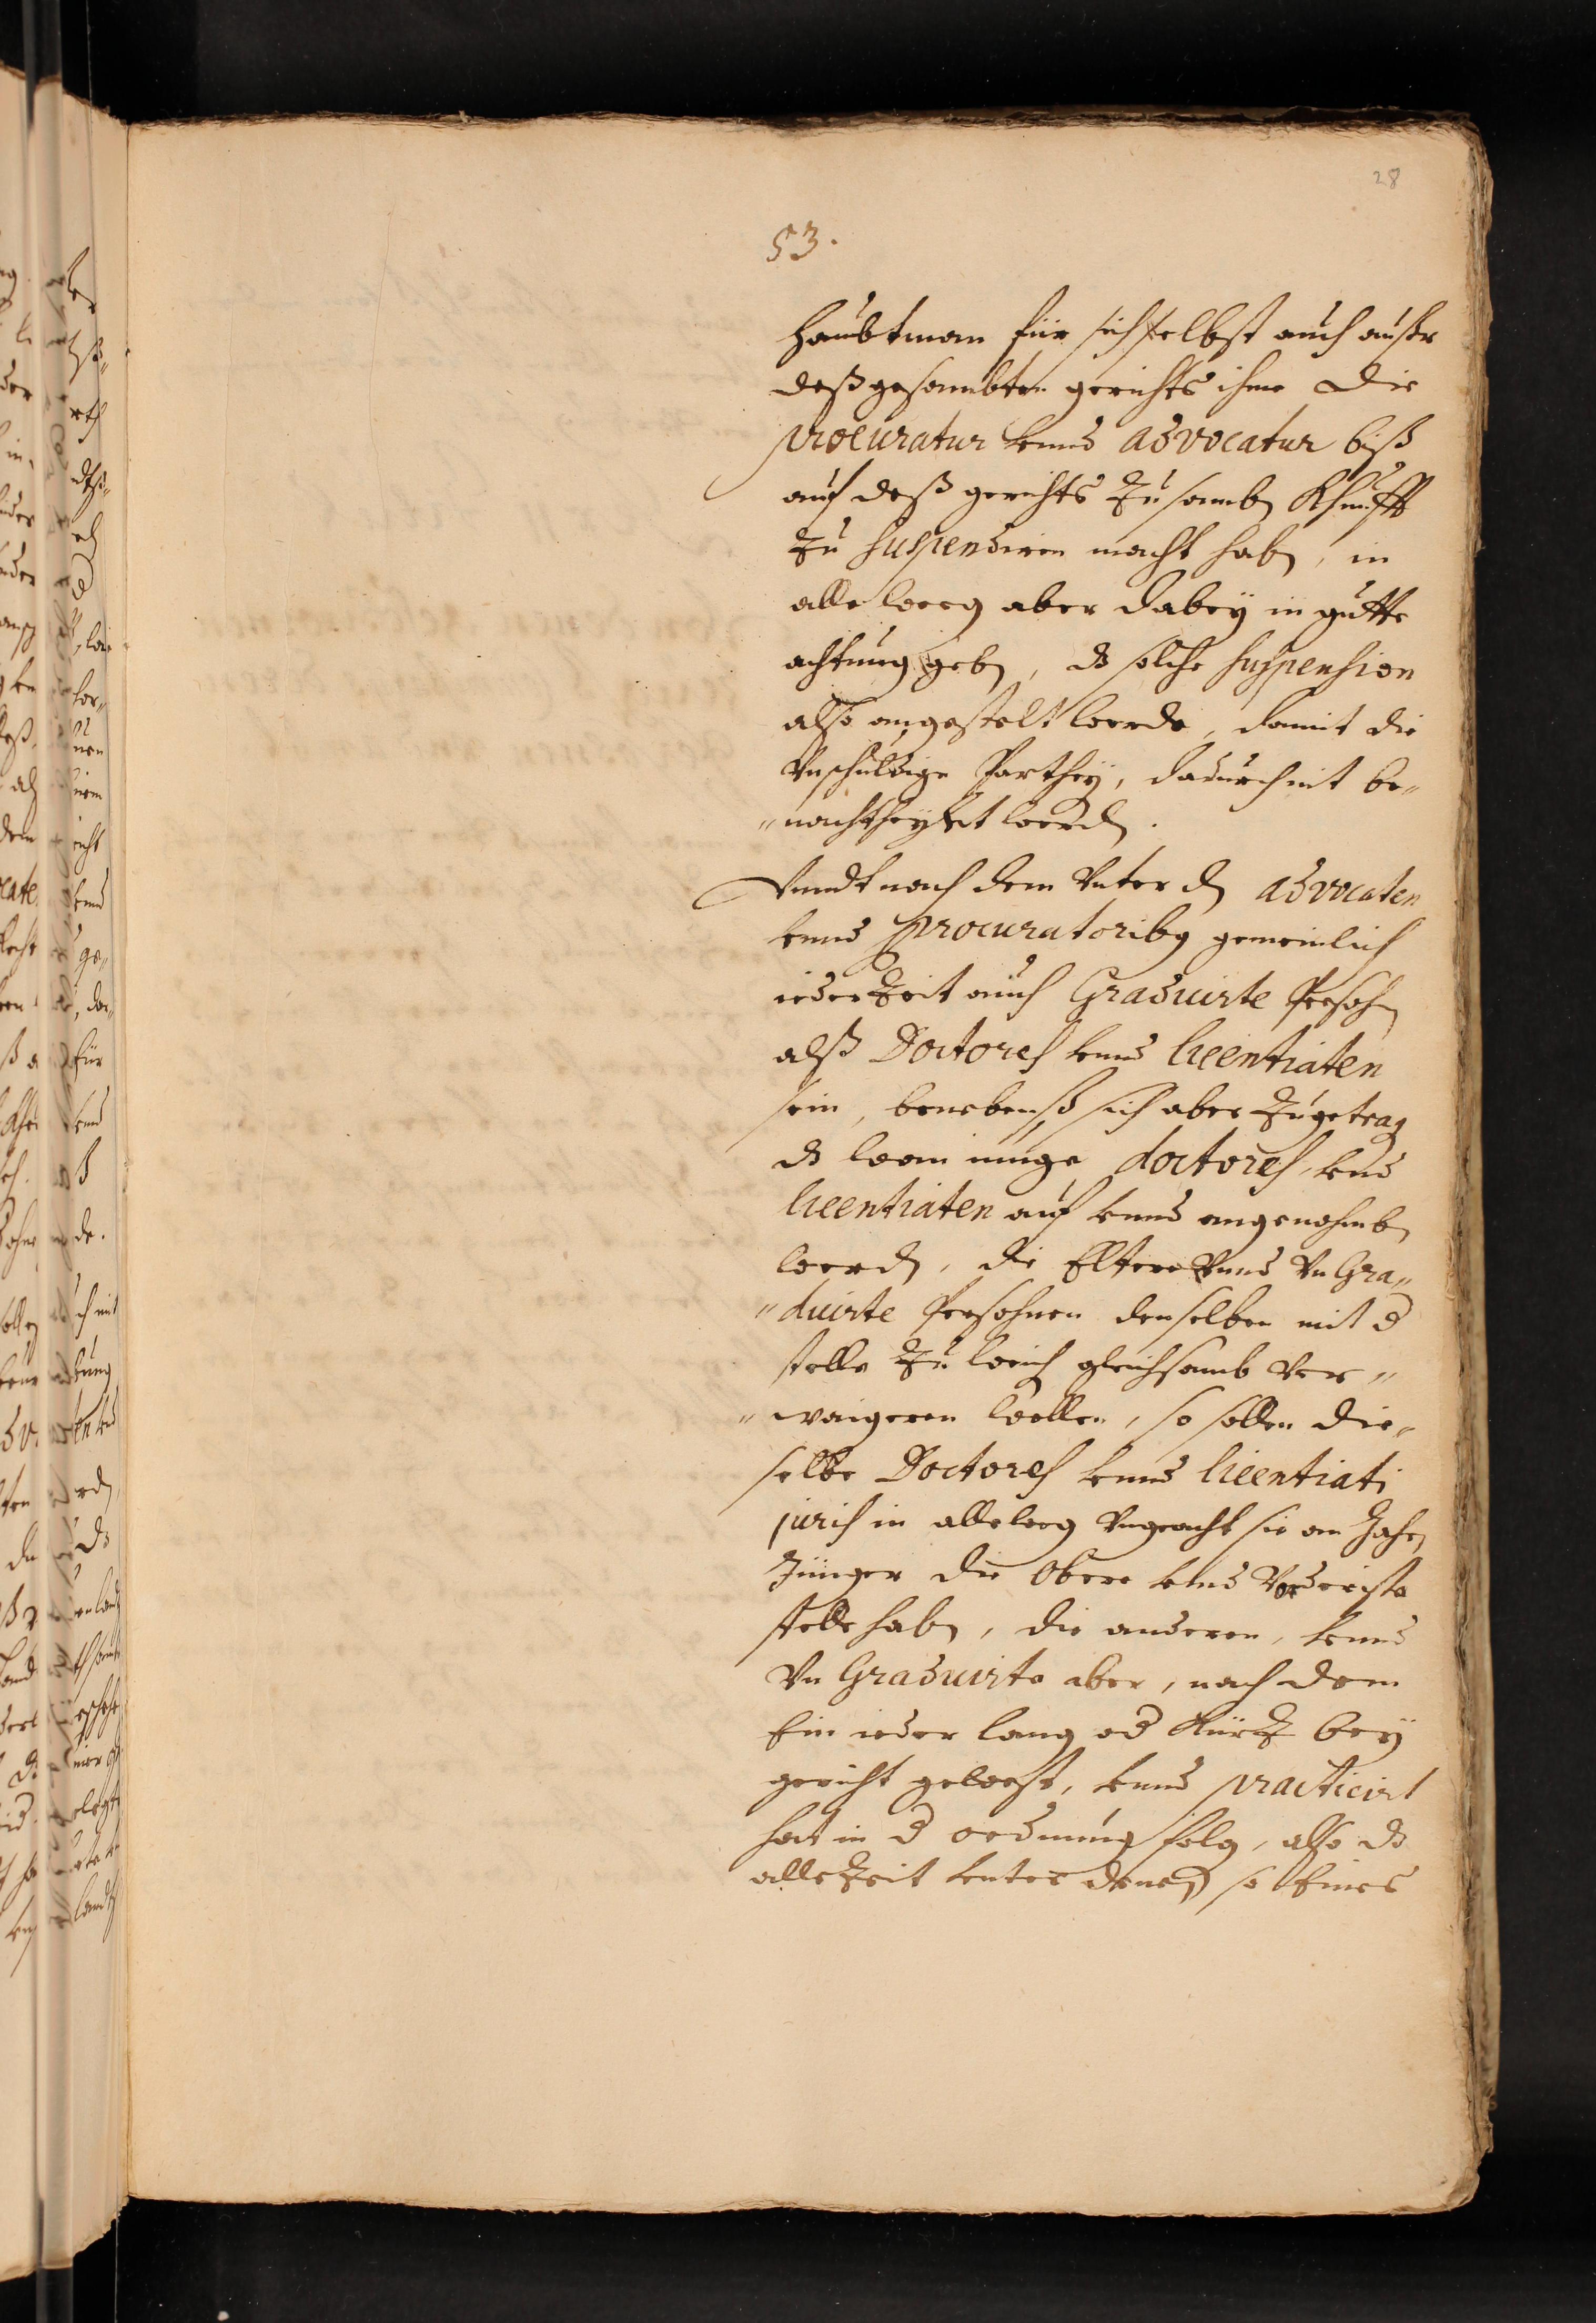 28
53.
Haubtman für sich selbst auch ausser
dess gesambten gerichts ihme die
procuratur unnd advocatur biss
auf dess gerichts Zusamb Khunfft
Zu suspendiren macht haben, in
alle weeg aber dabey in gutte
achtung geben, ds solche suspension
also angestelt werde, damit die
Unschuldige Parthey, dadurch nit be„
„nachtheyllt werden.
Unndt nach dem Unter den advocaten
unnd procuratoribus gemeinlich
iederZeit auch Graduirte Persohn
alss Doctores unnd licentiaten
sein, benebenss sich aber Zugetragen
ds wan iunge doctores, und
licentiaten auf unnd angenohmben
werden, die Eltere Unnd Un Gra„
„duirte Persohnen denselben mit der
stelle Zu weich gleichsamb Ver„
„waigeren wollen, so sollen die„
selbe Doctores unnd licentiati
juris in alleweeg Ungeacht sie an Jahren
Jünger die Obere unnd Vorderiste
stelle haben, die anderen, unnd
Un Graduirte aber, nach dem
Ein ieder lang oder KurtZ bey
gericht gewest, unnd practicirt
hat in der ordnung folgen, also ds
alleZeit unter denen so Eines